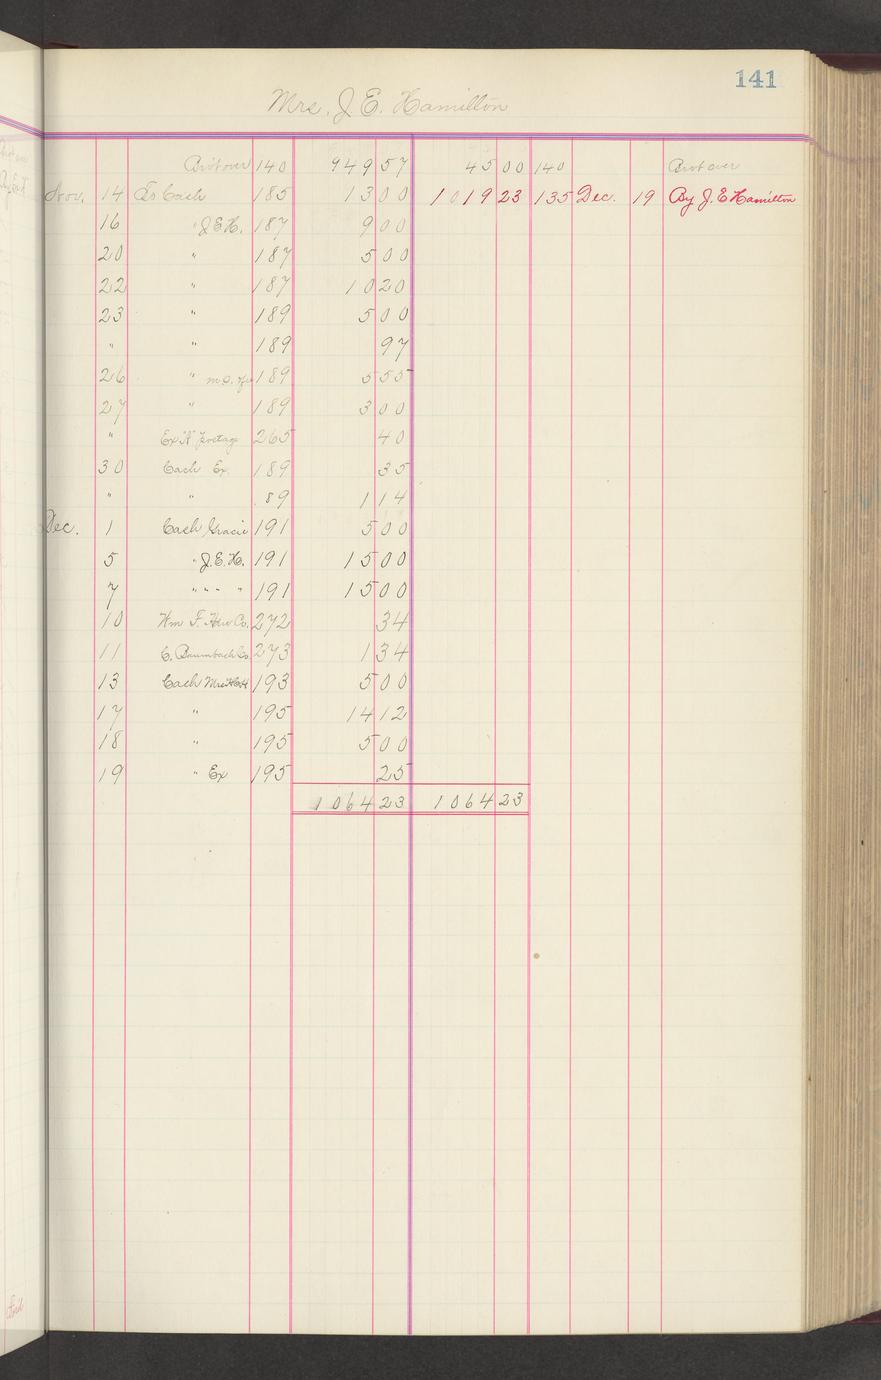 141
Mrs. J. E. Hamilton
Brot over 140 949 57 45 00 140 Brot over
Nov. 14 To Cash 185 13 00 1019 23 135 Dec. 19 By J. E Hamilton
16 " J.E.H. 187 9 00
20 " 187 5 00
22 " 187 10 20
23 " 189 5 00
" " 189 97
26 " m.o. 189 5 55
27 " 189 3 00
" Ex 265 40
30 Cash Ex. 189 35
" " 89 1 14
Dec. 1 Cash Gracie 191 5 00
5 " J.E.H. 191 15 00
7 " " - " 191 15 00
10 Wm F. Co. 272 34
11 C. Baumbach Co 273 1 34
13 Cash Mrs 193 5 00
17 " 195 14 12
18 " 195 5 00
19 " Ex 195 25
1064 23 1064 23